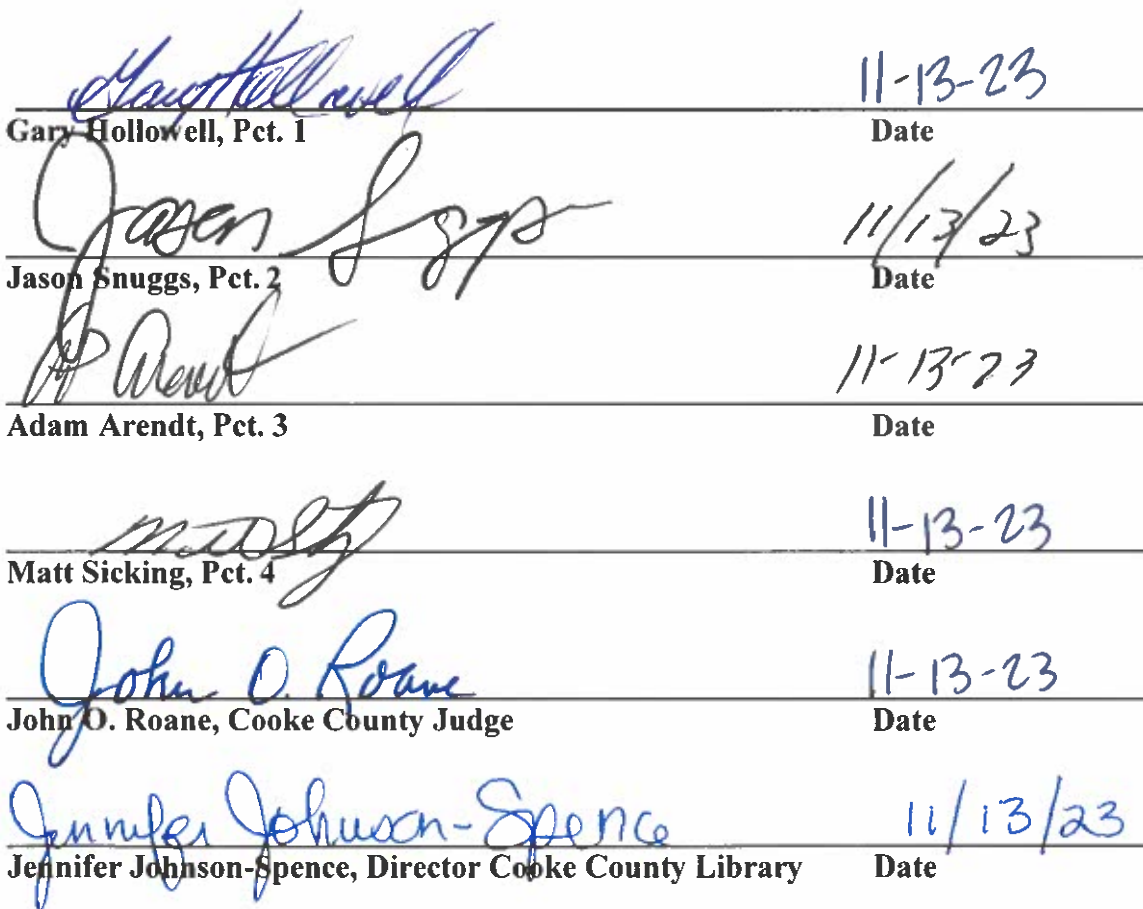 Gary Hollowell 11-13-23
Gary Hollowell, Pct. 1 Date
Jason 11/13/23
Jason Snuggs, Pct. 2 Date
Arendt 11-13-23
Adam Arendt, Pct. 3 Date
Matt 11-13-23
Matt Sicking, Pct. 4 Date
John O. Roane 11-13-23
John O. Roane, Cooke County Judge Date
Jennifer Johnson-Spence 11/13/23
Jennifer Johnson-Spence, Director Cooke County Library Date